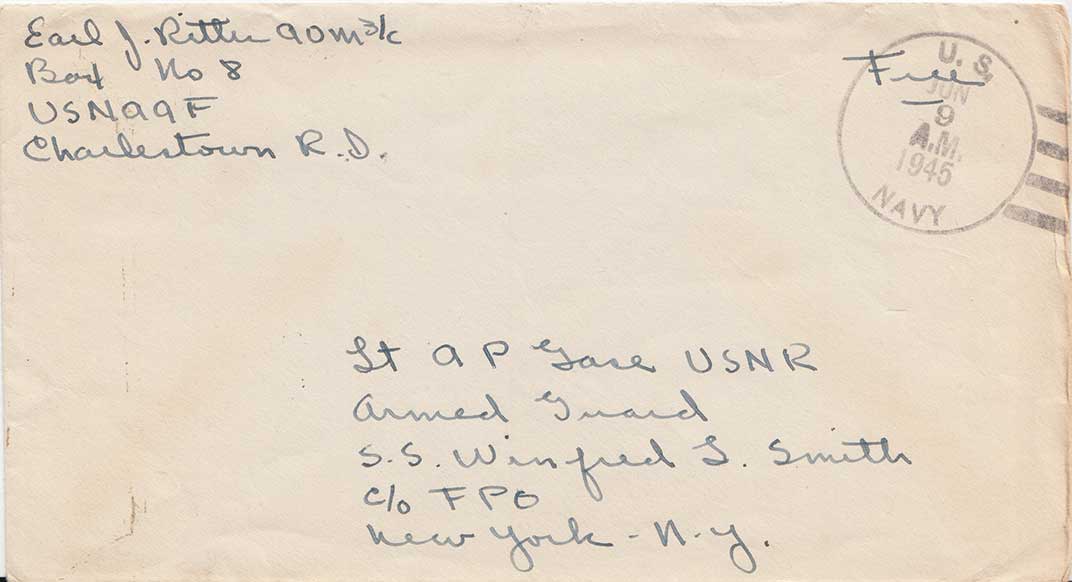 Earl J. Ritter AOM 3/c
Box No 8
USNAAF
Charlestown R.I.
Free
U. S.
JUN
9
A.M.
1945
NAVY
Lt A P Gase USNR
Armed Guard
S.S. Winfred L. Smith
c/o FPO
New York - N.Y.